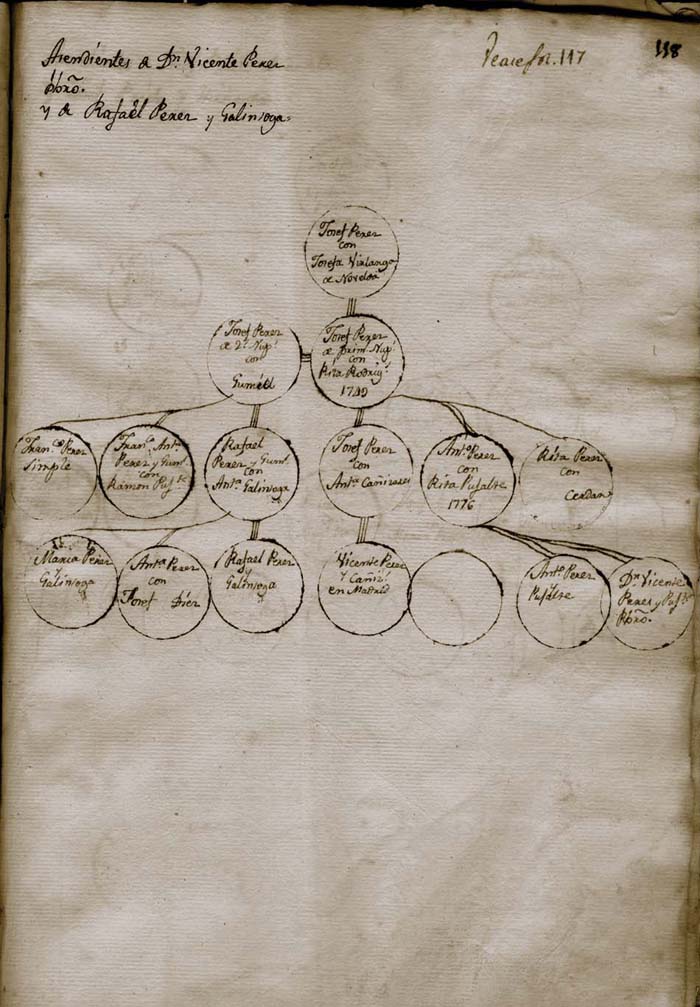 Asendientes de Dn. Vicente Perez
Pbro.
y de Rafaèl Perez y Galinioga.
Vease fol. 117
118
Josef Perez
con
Josefa
de Novelda
Josef Perez
de 2s. Nup.s
con
Gumiel
Josef Perez
de prim. Nup.s
con
Rita Rodrig.s
1749
Fran.co Perez
Simple
Fran.ca Ant.a
Perez y Gum.l
con
Ramon
Rafael
Perez y Gum.l
con
Ant.a Galinioga
Josef Perez
con
Ant.a Cañizares
Ant.o Perez
con
Rita Pujalte
1776
Rita Perez
con
Cerdan
Maria Perez
Galinioga
Ant.a Perez
con
Josef Diez
Rafael Perez
y
Galinioga
Vicente Perez
y Cañiz.s
en Madrid
Ant.o Perez
Pujalte
Dn. Vicente
Perez y Puj.te
Pbro.